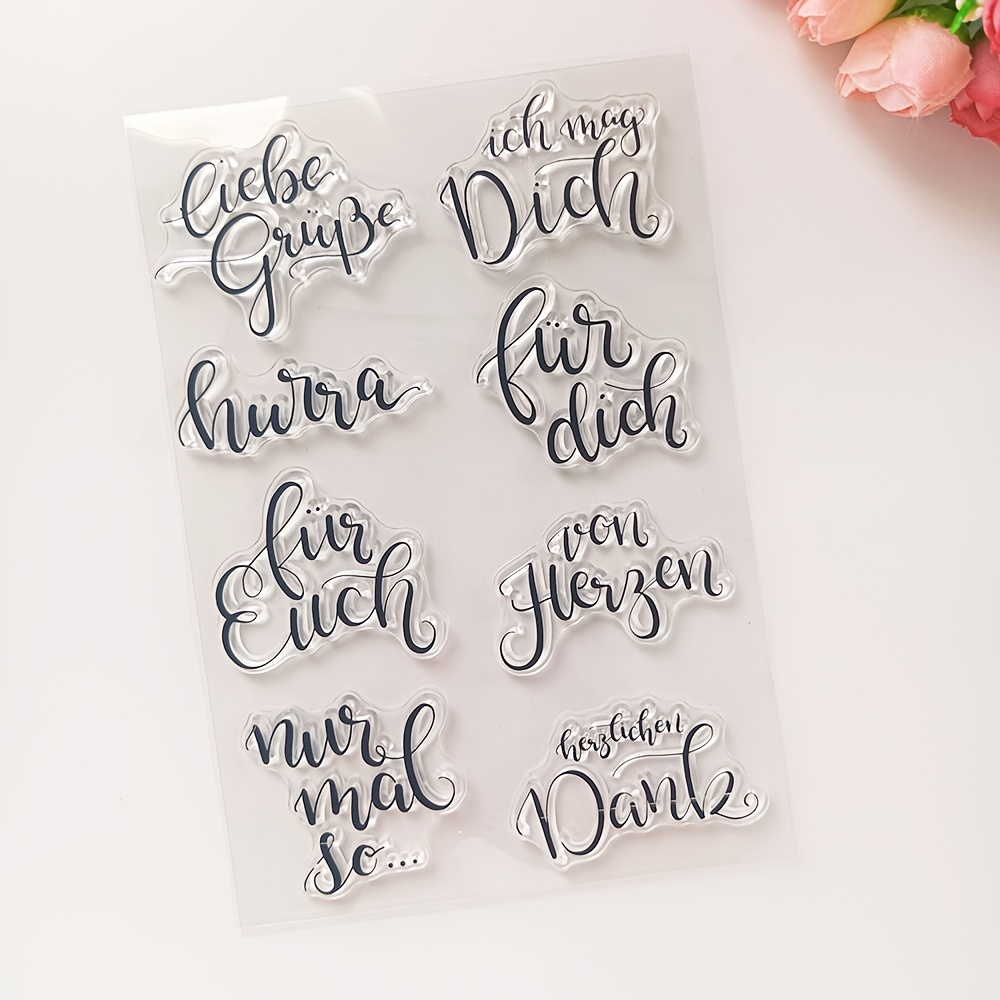 liebe
Grüße
ich mag
Dich
hurra
für
dich
für
Euch
von
Herzen
nur
mal
so...
herzlichen
Dank